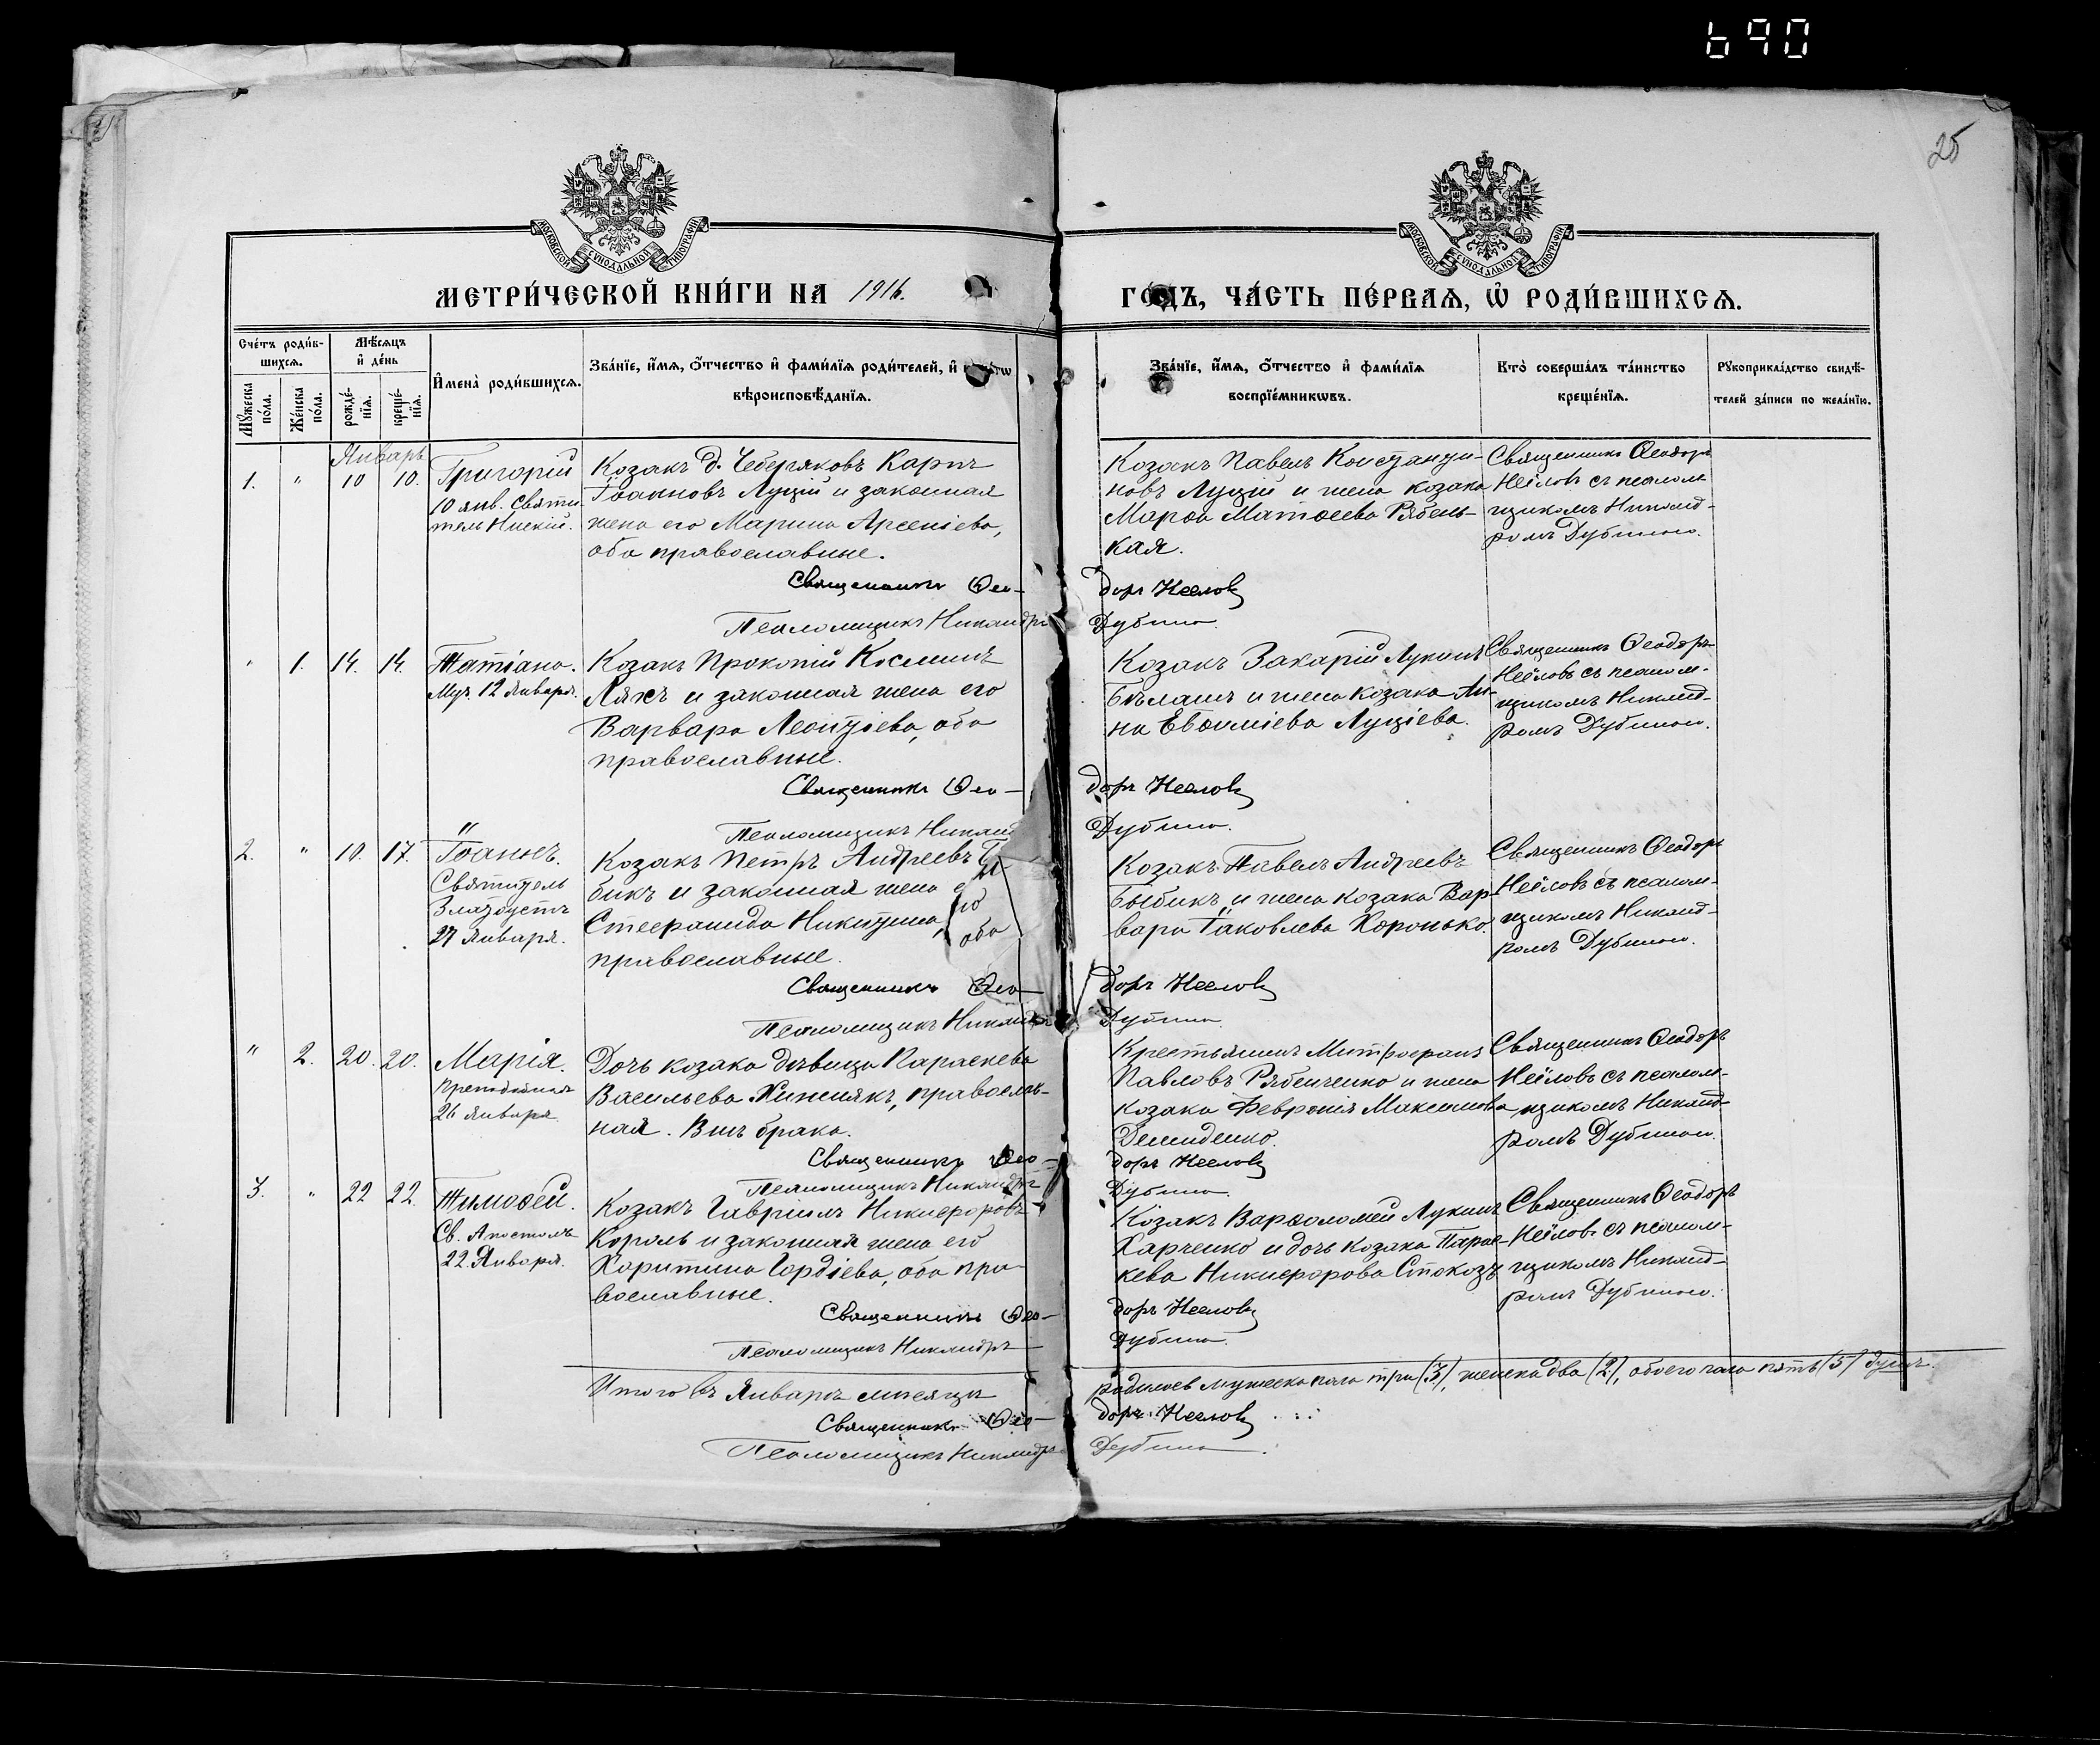 690
25
МОСКОВСКОЙ СѴНОДАЛЬНОЙ ТИПОГРАФІИ
МОСКОВСКОЙ СѴНОДАЛЬНОЙ ТИПОГРАФІИ
МЕТРИ́ЧЕСКОЙ КНИ́ГИ НА 1916.
ГОДЪ, ЧА́СТЬ ПЕ́РВАѦ, Ѡ҆ РОДИ́ВШИХСѦ.
Сче́тъ роди́в-
шихсѧ.
Мꙋ́жеска по́ла.
Же́нска по́ла.
Мѣ́сѧцъ и҆ де́нь
рожде́-нїѧ.
креще́-нїѧ.
И҆мена̀ роди́вшихсѧ.
Зва́нїе, и҆́мѧ, о҆́тчество и҆ фами́лїѧ роди́телей, и҆
вѣроисповѣ́данїѧ.
Зва́нїе, и҆́мѧ, о҆́тчество и҆ фами́лїѧ
воспрїе́мникѡвъ.
Кто̀ соверша́лъ та́инство
креще́нїѧ.
Рꙋкоприкла́дство свидѣ́-
телей за́писи по жела́нїю.
Январь
1. " 10 10. Григорій
10 янв. Святи-
тель Нисскій.
Козакъ д. Чеберяковъ Карпъ
Іоанновъ Луцій и законная
жена его Марина Арсеніева,
оба православные.
Козакъ Павелъ Константи-
новъ Луцій и жена козака
Марѳа Матѳеева Рябень-
кая.
Священникъ Ѳеодоръ
Неёловъ съ псалом-
щикомъ Никанд-
ромъ Дубиною.
Священникъ Ѳео-
доръ Неёловъ
Псаломщикъ Никандръ
Дубина.
" 1. 14. 14. Татіана.
Муч. 12 Января.
Козакъ Прокопій Косминъ
Ляхъ и законная жена его
Варвара Леонтіева, оба
православные.
Козакъ Захарій Лукинъ
Бѣлашъ и жена козака Ан-
на Евѳиміева Луціева.
Священникъ Ѳеодоръ
Неёловъ съ псалом-
щикомъ Никанд-
ромъ Дубиною.
Священникъ Ѳео-
доръ Неёловъ
Псаломщикъ Никанд
Дубина.
2. " 10. 17. Іоаннъ.
Святитель
Златоустъ
27 Января.
Козакъ Петръ Андреевъ
бикъ и законная жена его
Стефанида Никитина, оба
православные.
Козакъ Павелъ Андреевъ
Бибикъ и жена козака Вар-
вара Іаковлева Хоронько.
Священникъ Ѳеодоръ
Неёловъ съ псалом-
щикомъ Никанд-
ромъ Дубиною.
Священникъ Ѳео-
доръ Неёловъ
Псаломщикъ Никандръ
Дубина
" 2. 20. 20. Марія.
Преподобная
26 Января
Дочь козака дѣвица Параскева
Васильева Хижнякъ, православ-
ная. Внѣ брака.
Крестьянинъ Митрофанъ
Павловъ Рябенченко и жена
козака Февронія Максимова
Демиденко.
Священникъ Ѳеодоръ
Неёловъ съ псалом-
щикомъ Никанд-
ромъ Дубиною.
Священникъ Ѳео-
доръ Неёловъ
Псаломщикъ Никандръ
Дубина.
3. " 22 22. Тимоѳей.
Св. Апостолъ
22 Января.
Козакъ Гавріилъ Никифоровъ
Король и законная жена его
Харитина Гордіева, оба пра-
вославные.
Козакъ Варѳоломей Лукинъ
Харченко и дочь козака Парас-
кева Никифорова Стокозъ
Священникъ Ѳеодоръ
Неёловъ съ псалом-
щикомъ Никанд-
ромъ Дубиною.
Священникъ Ѳео-
доръ Неёловъ
Псаломщикъ Никандръ
Дубина.
Итого въ Январѣ мѣсяцѣ
родилось мужеска пола три (3), женска два (2), обоего пола пять (5) душъ.
Священникъ Ѳео-
доръ Неёловъ
Псаломщикъ Никандръ
Дубина